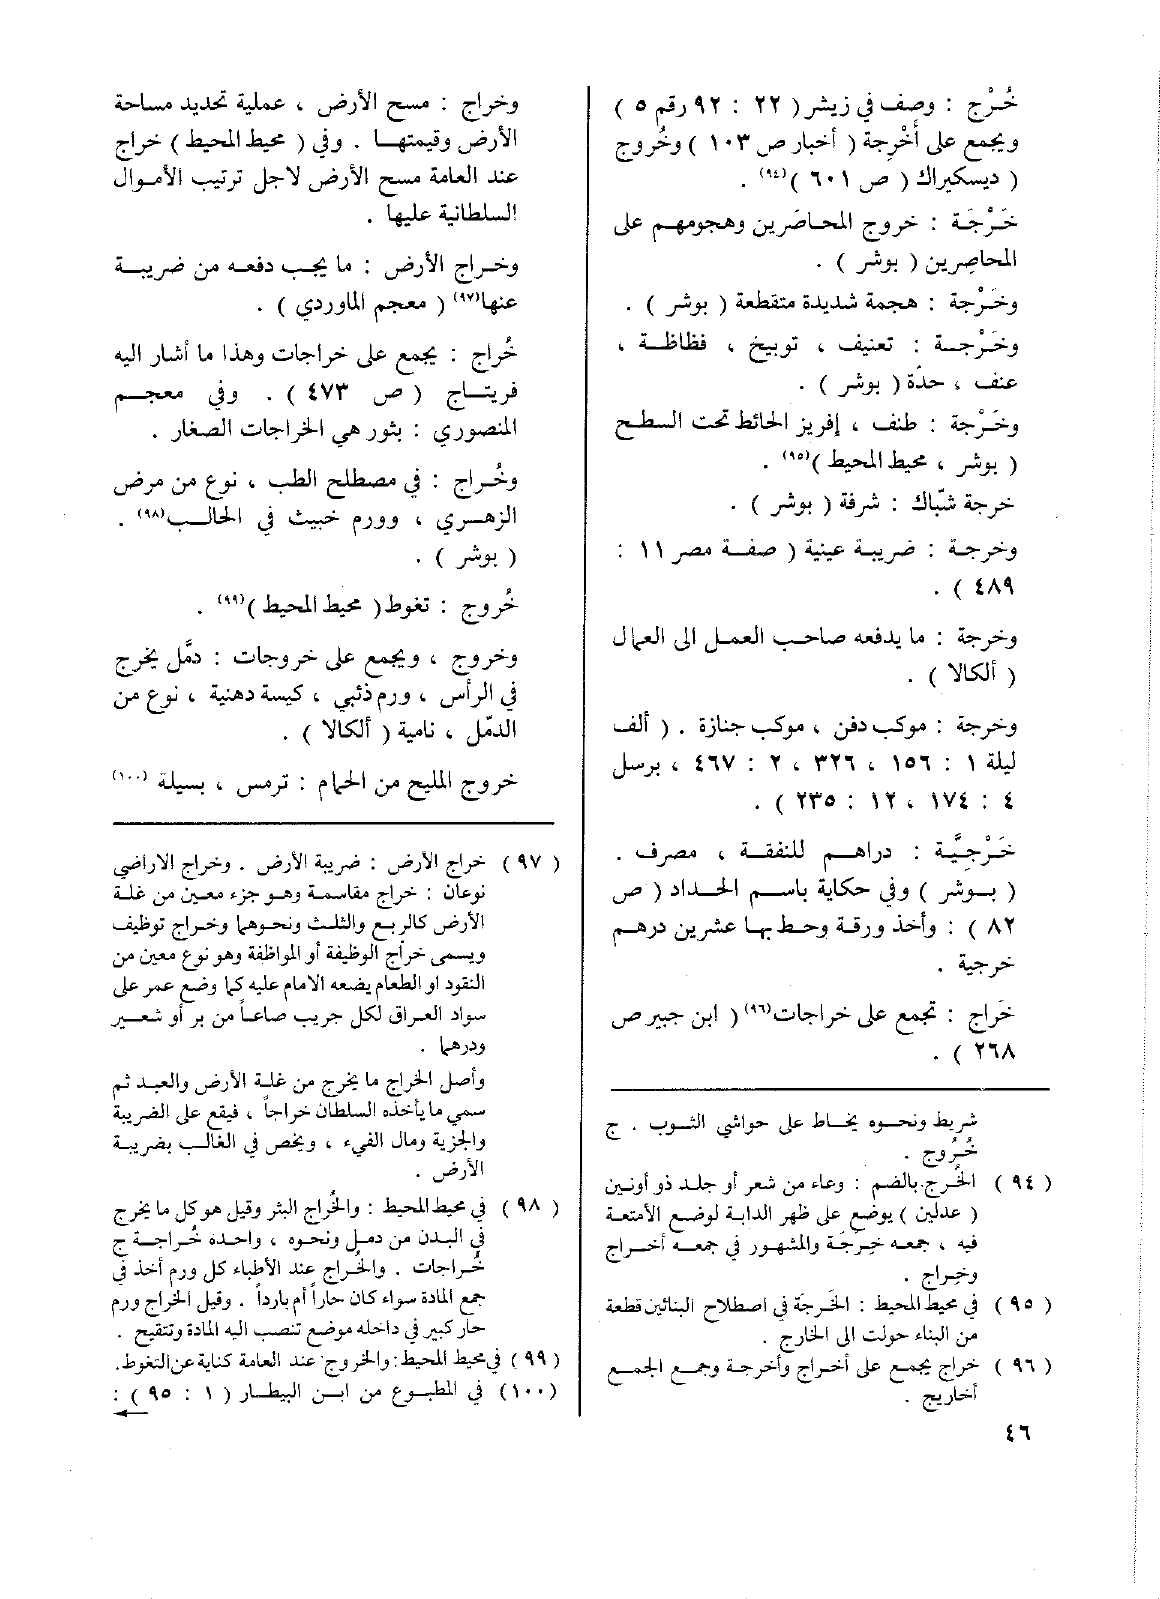 خُرْج : وصف في زيشر ( ٢٢ : ٩٢ رقم ٥ )
ويجمع على أَخْرِجة ( أخبار ص ١٠٣ ) وخُروج
( ديسكيراك ( ص ٦٠١ )(٩٤) .
خَرْجَة : خروج المحاصَرين وهجومهم على
المحاصِرين ( بوشر ) .
وخَرْجة : هجمة شديدة متقطعة ( بوشر ) .
وخَرْجة : تعنيف ، توبيخ ، فظاظة ،
عنف ، حدّة ( بوشر ) .
وخَرْجة : طنف ، إفريز الحائط تحت السطح
( بوشر ، محيط المحيط )(٩٥) .
خرجة شبّاك : شرفة ( بوشر ) .
وخرجة : ضريبة عينية ( صفة مصر ١١ :
٤٨٩ ) .
وخرجة : ما يدفعه صاحب العمل الى العمال
( ألكالا ) .
وخرجة : موكب دفن ، موكب جنازة . ( ألف
ليلة ١ : ١٥٦ ، ٣٢٦ ، ٢ : ٤٦٧ ، برسل
٤ : ١٧٤ ، ١٢ : ٢٣٥ ) .
خَرْجِيَّة : دراهم للنفقة ، مصرف .
( بوشر ) وفي حكاية باسم الحداد ( ص
٨٢ ) : وأخذ ورقة وحط بها عشرين درهم
خرجية .
خَراج : تجمع على خراجات(٩٦) ( ابن جبير ص
٢٦٨ ) .
شريط ونحوه يخاط على حواشي الثوب . ج
خُرُوج .
( ٩٤ ) الخُرج بالضم : وعاء من شعر أو جلد ذو أونين
( عدلين ) يوضع على ظهر الدابة لوضع الأمتعة
فيه ، جمعه خِرَجَة والمشهور في جمعه أخراج
وخِراج .
( ٩٥ ) في محيط المحيط : الخَرجة في اصطلاح البنائين قطعة
من البناء حولت الى الخارج .
( ٩٦ ) خراج يجمع على أخراج وأخرجة وجمع الجمع
أخاريج .
٤٦
وخراج : مسح الأرض ، عملية تحديد مساحة
الأرض وقيمتها . وفي ( محيط المحيط ) خراج
عند العامة مسح الأرض لاجل ترتيب الأموال
السلطانية عليها .
وخراج الأرض : ما يجب دفعه من ضريبة
عنها(٩٧) ( معجم الماوردي ) .
خُراج : يجمع على خراجات وهذا ما أشار اليه
فريتاج ( ص ٤٧٣ ) . وفي معجم
المنصوري : بثور هي الخراجات الصغار .
وخُراج : في مصطلح الطب ، نوع من مرض
الزهري ، وورم خبيث في الحالب(٩٨) .
( بوشر ) .
خُروج : تغوط ( محيط المحيط )(٩٩) .
وخروج ، ويجمع على خروجات : دمّل يخرج
في الرأس ، ورم ذئبي ، كيسة دهنية ، نوع من
الدمّل ، نامية ( ألكالا ) .
خروج المليح من الحمام : ترمس ، بسيلة (١٠٠)
( ٩٧ ) خراج الأرض : ضريبة الأرض . وخراج الاراضي
نوعان : خراج مقاسمة وهو جزء معين من غلة
الأرض كالربع والثلث ونحوهما وخراج توظيف
ويسمى خراج الوظيفة أو المواظفة وهو نوع معين من
النقود او الطعام يضعه الامام عليه كما وضع عمر على
سواد العراق لكل جريب صاعاً من بر أو شعير
ودرهما .
وأصل الخراج ما يخرج من غلة الأرض والعبد ثم
سمي ما يأخذه السلطان خراجاً ، فيقع على الضريبة
والجزية ومال الفيء ، ويخص في الغالب بضريبة
الأرض .
( ٩٨ ) في محيط المحيط : والخُراج البثر وقيل هو كل ما يخرج
في البدن من دمل ونحوه ، واحده خُراجة ج
خُراجات . والخُراج عند الأطباء كل ورم أخذ في
جمع المادة سواء كان حاراً أم بارداً . وقيل الخراج ورم
حار كبير في داخله موضع تنصب اليه المادة وتتقيح .
( ٩٩ ) في محيط المحيط: والخروج عند العامة كناية عن التغوط.
(١٠٠) في المطبوع من ابن البيطار ( ١ : ٩٥ ) :